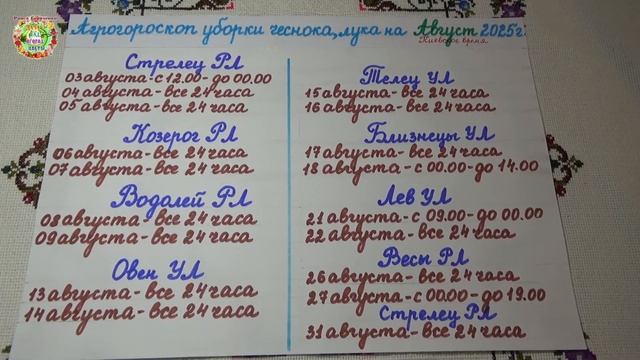 Агрогороскоп уборки чеснока, лука на Август 2025г.
Киевское время
Стрелец РЛ
03 августа - с 12.00 - до 00.00
04 августа - все 24 часа
05 августа - все 24 часа
Козерог РЛ
06 августа - все 24 часа
07 августа - все 24 часа
Водолей РЛ
08 августа - все 24 часа
09 августа - все 24 часа
Овен УЛ
13 августа - все 24 часа
14 августа - все 24 часа
Телец УЛ
15 августа - все 24 часа
16 августа - все 24 часа
Близнецы УЛ
17 августа - все 24 часа
18 августа - с 00.00 - до 14.00
Лев УЛ
21 августа - с 09.00 - до 00.00
22 августа - все 24 часа
Весы РЛ
26 августа - все 24 часа
27 августа - с 00.00 - до 19.00
Стрелец РЛ
31 августа - все 24 часа